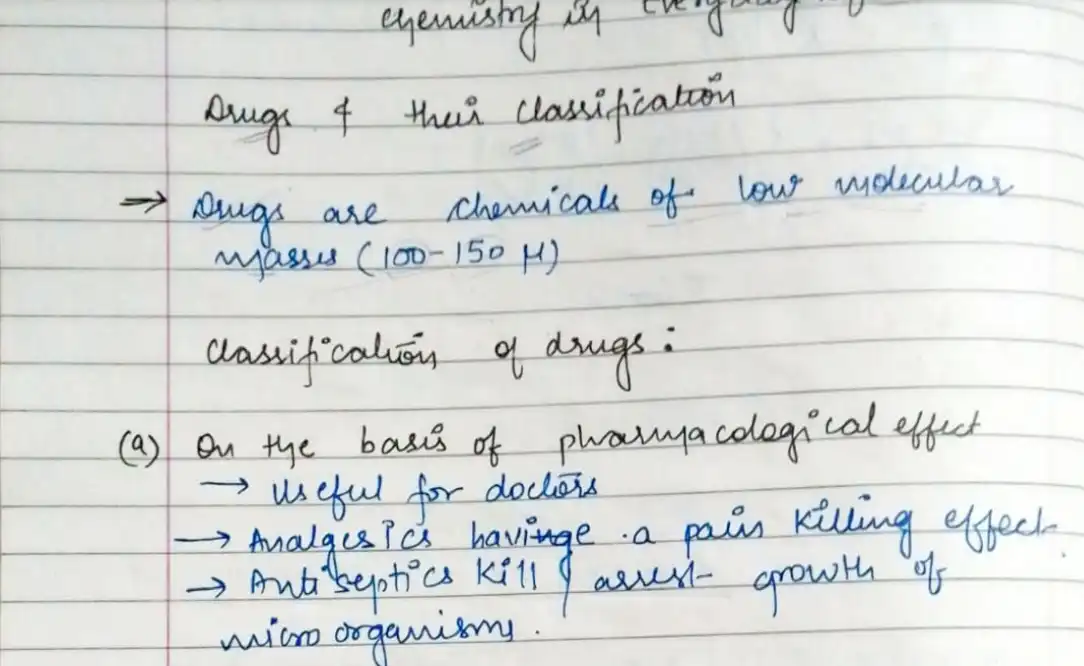 chemistry in Everyday
Drugs & their classification
→ Drugs are chemicals of low molecular
masses (100-150 μ)
classification of drugs :
(a) On the basis of pharmacological effect
→ Useful for doctors
→ Analgesics havinge a pain killing effect
→ Antiseptics kill / arrest growth of
micro organisms.